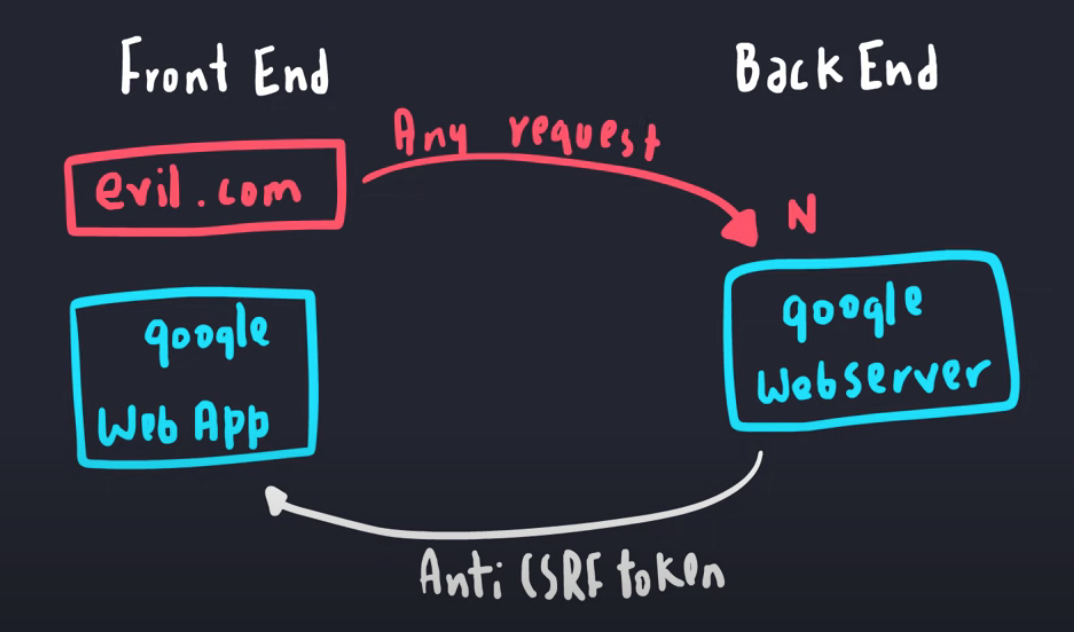 Front End
Back End
Any request
evil.com
N
google
Web App
google
Webserver
Anti CSRF token